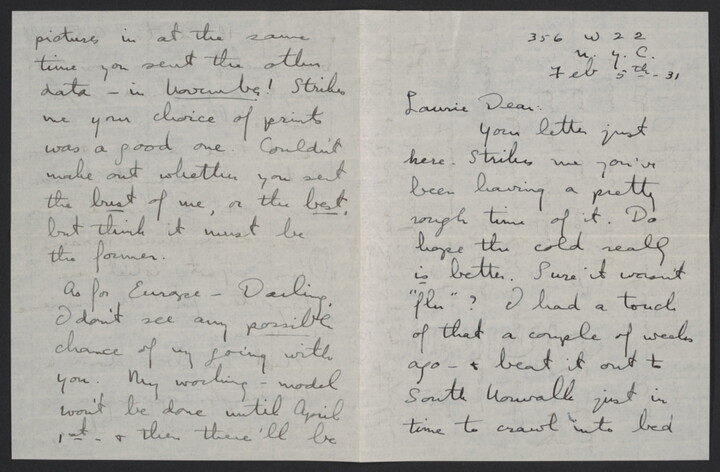 356 W 22
N.Y.C.
Feb 5th - 31
Laurie Dear:
Your letter just
here. Strikes me you've
been having a pretty
rough time of it. Do
hope the cold really
is better. Sure it wasn't
"flu"? I had a touch
of that a couple of weeks
ago - & beat it out to
South Norwalk just in
time to crawl into bed
pictures in at the same
time you sent the other
data - in November! Strikes
me your choice of prints
was a good one. Couldn't
make out whether you sent
the bust of me, or the best,
but think it must be
the former.
As for Europe - Darling,
I don't see any possible
chance of my going with
you. My working-model
won't be done until April
1st - & then there'll be